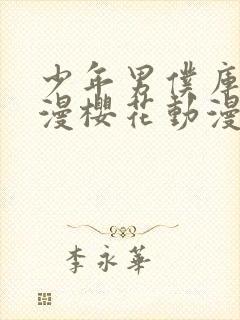 少年男僕庫
漫櫻花動漫
李永華